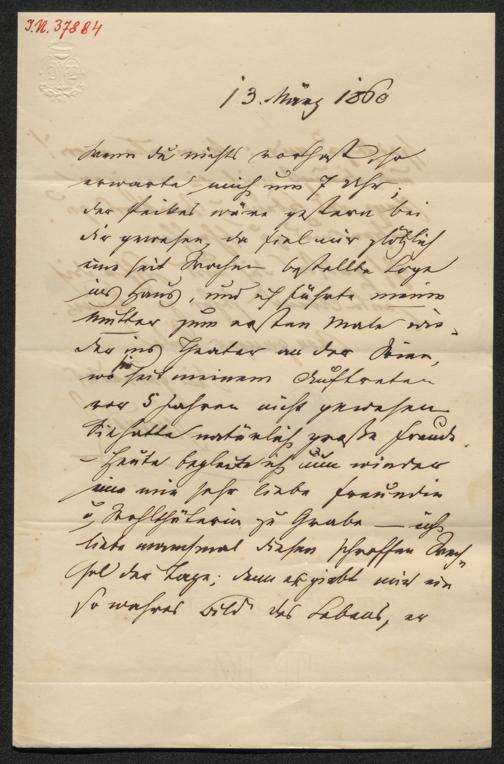 J.N. 37884
13. März 1860
Wenn du nichts vorhast, so
erwarte mich um 7 Uhr;
wäre gestern bei
dir gewesen, da fiel mir plötzlich
eine seit Wochen bestellte Loge
ins Haus, und ich führte meine
Mutter zum ersten Male wie-
der ins Theater an der Wien,
wo sie seit meinem Auftreten
vor 5 Jahren nicht gewesen.
Sie hatte natürlich große Freude.
– Heute begleite ich nun wieder
eine mir sehr liebe Freundin
u. Wohlthäterin zu Grabe – ich
liebe manchmal diesen schroffen Wech-
sel der Tage; denn er giebt mir ein
so wahres Bild des Lebens, er